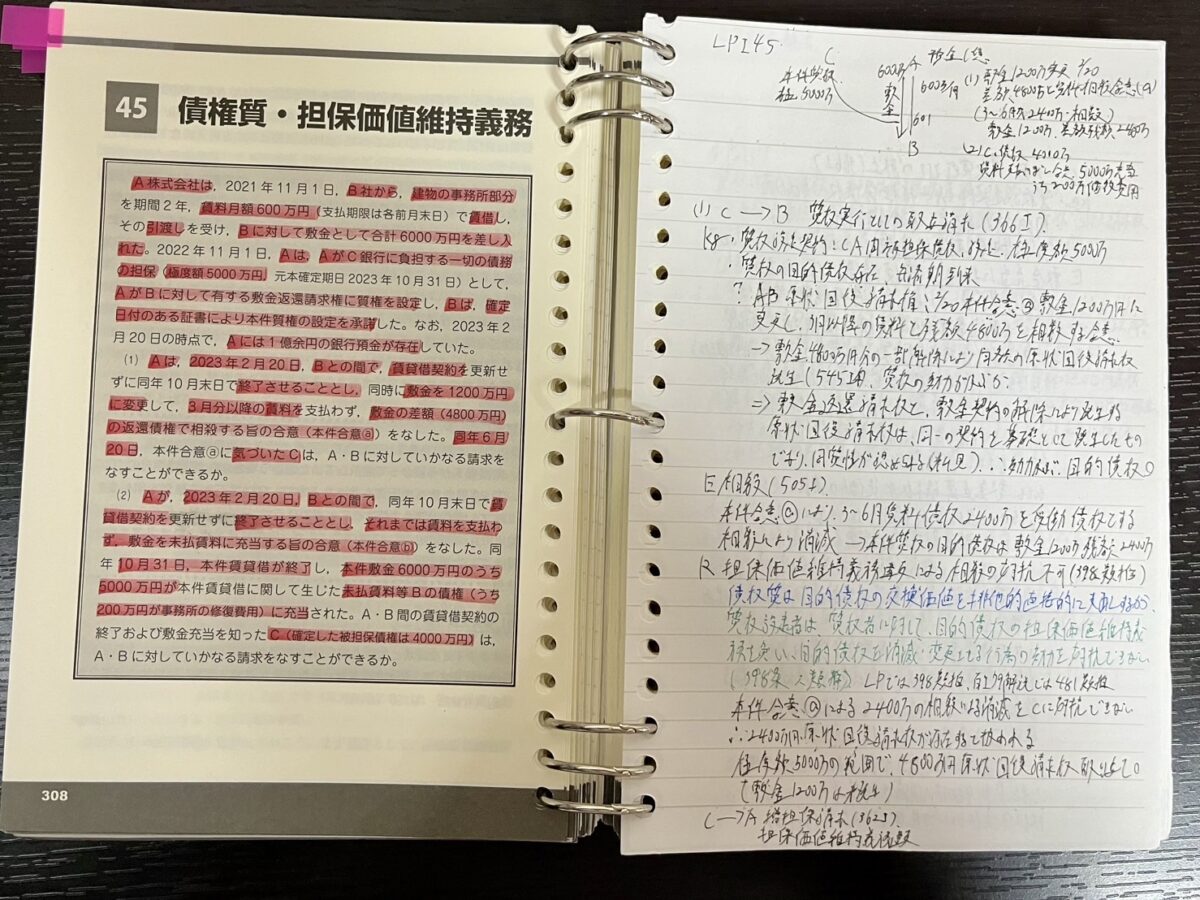 45 債権質・担保価値維持義務
A株式会社は，2021年11月1日，B社から，建物の事務所部分
を期間2年，賃料月額600万円（支払期限は各前月末日）で賃借し，
その引渡しを受け，Bに対して敷金として合計6000万円を差し入
れた。2022年11月1日，Aは，AがC銀行に負担する一切の債務
の担保（極度額5000万円，元本確定期日2023年10月31日）として，
AがBに対して有する敷金返還請求権に質権を設定し，Bは，確定
日付のある証書により本件質権の設定を承諾した。なお，2023年2
月20日の時点で，Aには1億余円の銀行預金が存在していた。
(1) Aは，2023年2月20日，Bとの間で，賃貸借契約を更新せ
ずに同年10月末日で終了させることとし，同時に敷金を1200万円
に変更して，3月分以降の賃料を支払わず，敷金の差額（4800万円）
の返還債権で相殺する旨の合意（本件合意ⓐ）をなした。同年6月
20日，本件合意ⓐに気づいたCは，A・Bに対していかなる請求を
なすことができるか。
(2) Aが，2023年2月20日，Bとの間で，同年10月末日で賃
貸借契約を更新せずに終了させることとし，それまでは賃料を支払わ
ず，敷金を未払賃料に充当する旨の合意（本件合意ⓑ）をなした。同
年10月31日，本件賃貸借が終了し，本件敷金6000万円のうち
5000万円が本件賃貸借に関して生じた未払賃料等Bの債権（うち
200万円が事務所の修復費用）に充当された。A・B間の賃貸借契約の
終了および敷金充当を知ったC（確定した被担保債権は4000万円）は，
A・Bに対していかなる請求をなすことができるか。
308
LPI45
C
本件質権
極5000万
600万 A
敷金
600万/月
B
(1) 敷金1200万変更 2/20
差額4800万と賃料相殺合意(a)
(3～6月分2400万相殺)
敷金1200万、差額残額2400万
(2) C債権 4000万
5000万充当
うち200万修復費用
(1) C→B 質権実行としての取立請求(366Ⅰ)
Kg・質権設定契約：CA間被担保債権、設定、極度額5000万
・質権の目的債権存在 弁済期到来
? AB 原状回復請求権：2/20本件合意ⓐ敷金1200万円に
変更し、3月以降の賃料と残額4800万を相殺する合意
→敷金4800万円分の一部解除により同額の原状回復請求権
発生(545Ⅰ)、質権の効力が及ぶか
⇒敷金返還請求権と、敷金契約の解除により発生する
原状回復請求権は、同一の契約を基礎として発生したもの
であり、同質性が認められる(私見) ∴効力及ぶ、目的債権○
E 相殺(505Ⅰ)
本件合意ⓐにより、3～6月賃料債権2400万を受働債権とする
相殺により消滅 →本件質権の目的債権は敷金1200万残額2400万
R 担保価値維持義務違反による相殺の対抗不可(398類推)
債権質は目的債権の交換価値を排他的直接的に支配するから
質権設定者は質権者に対して、目的債権の担保価値維持義
務を負い、目的債権を消滅・変更させる行為の効力を対抗できない
LPでは398類推、百選解説では481類推
本件合意ⓐによる2400万の相殺による消滅をCに対抗できない
∴2400万円原状回復請求権が存在すると扱われる
極度額5000万の範囲で、4800万円原状回復請求権取立て○
(敷金1200万は未発生)
C→A 増担保請求
担保価値維持義務